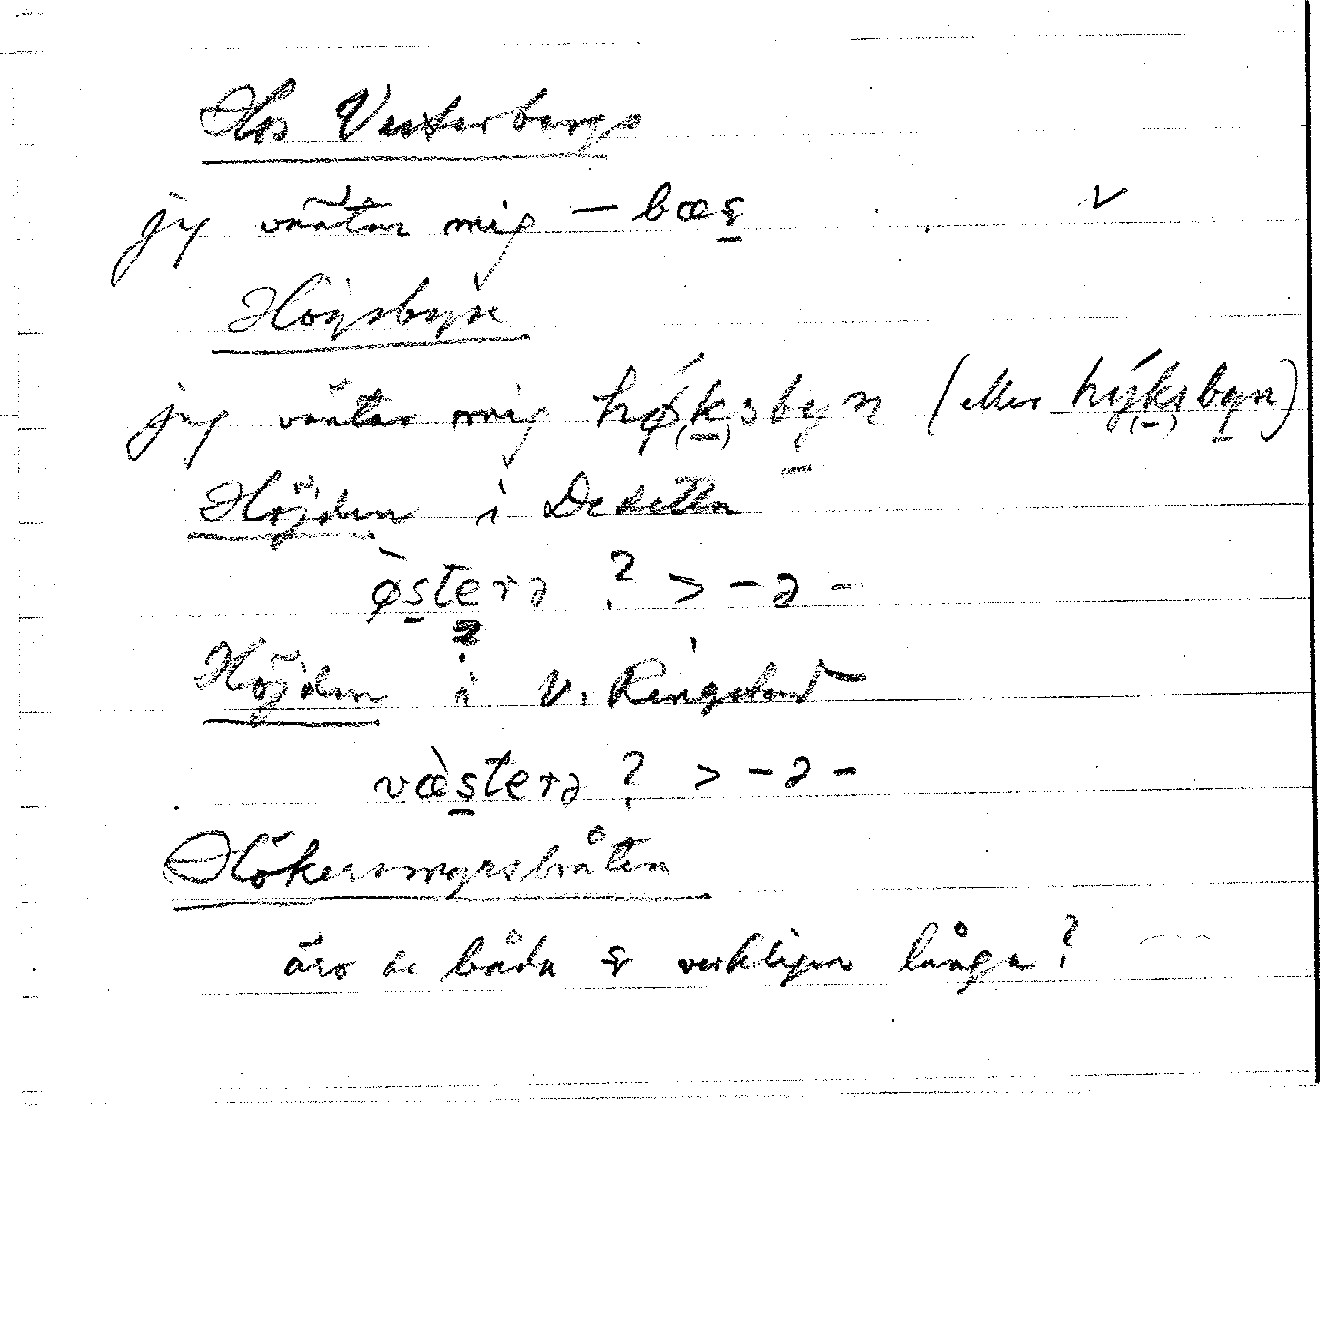 Hos Vesterbergs
jag väntar mig — bæs̠ v
Högsbyn
jag väntar mig hǿ(k̠)sby̠n (eller hý(k̠)sby̠n)
Höjden i Dedetta
ø̀s̠te̠rə ? > -ə-
Höjden i V. Ringstad
væ̀s̠terə ? > -ə-
Hökersmyrsbråten
äro de båda verkligen långa?